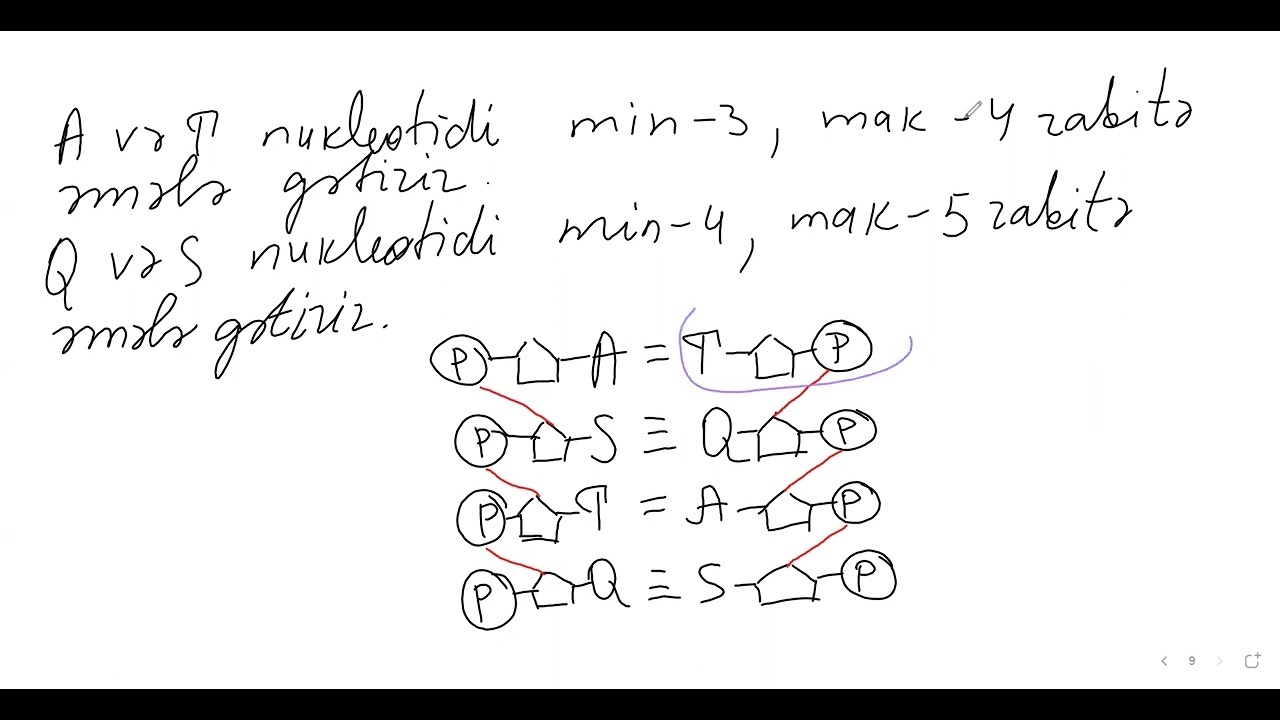 A və T nukleotidi min-3, mak-4 rabitə
əmələ gətirir.
Q və S nukleotidi min-4, mak-5 rabitə
əmələ gətirir.
P A = T P
P S ≡ Q P
P T = A P
P Q ≡ S P
9